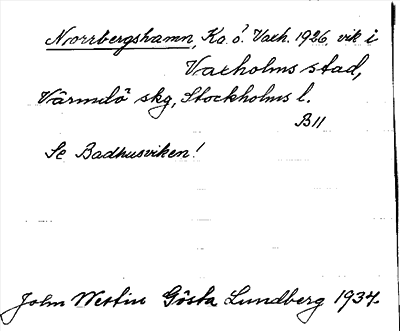 Norrbergshamn, Ka. ö? Vaxh. 1926, vik i
Vaxholms stad,
Värmdö skg, Stockholms l.
B11
Se Badhusviken!
John Westin Gösta Lundberg 1934.